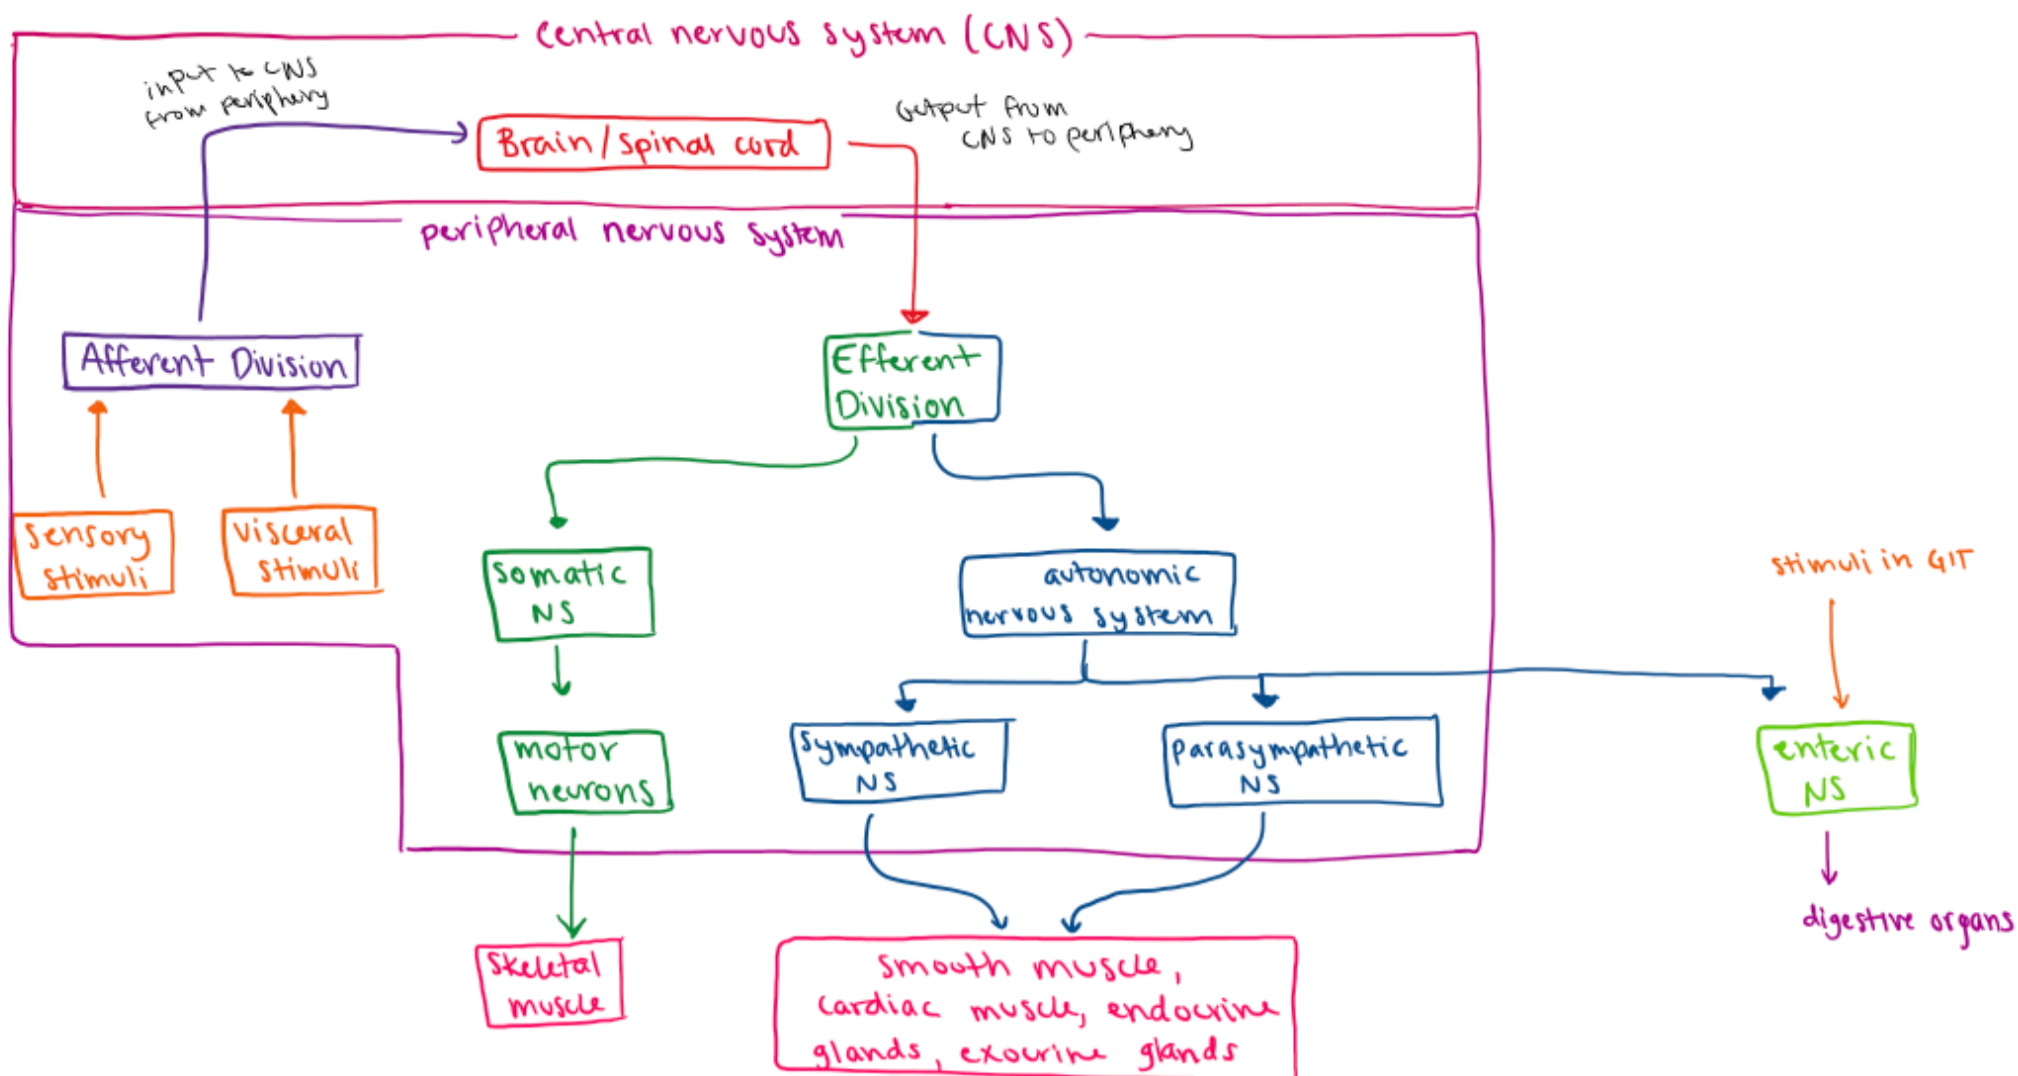 Central nervous system (CNS)
input to CNS
from periphery
Output from
CNS to periphery
Brain/spinal cord
peripheral nervous system
Afferent Division
Efferent
Division
sensory
stimuli
visceral
stimuli
somatic
NS
autonomic
nervous system
stimuli in GIT
motor
neurons
sympathetic
NS
parasympathetic
NS
enteric
NS
digestive organs
skeletal
muscle
smooth muscle,
cardiac muscle, endocrine
glands, exocrine glands